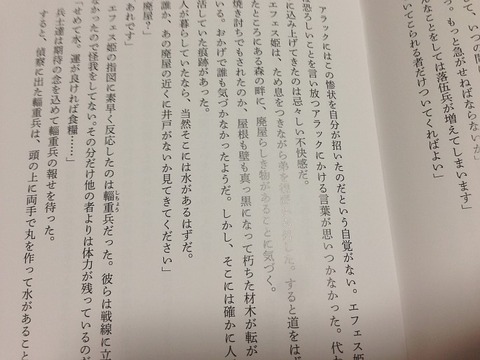 て、いつの間
う。もっと急がせねばならないか」
んなことをしては落伍兵が増えてしまいます」
いてこられる者だけついてくればよい」
アラックにはこの惨状を自分が招いたのだという自覚がない。エフェス姫
は恐ろしいことを言い放つアラックにかける言葉が思いつかなかった。代
に込み上げてきたのは忌々しい不快感だ。
エフェス姫は、ため息をつきながら弟を
した。すると道をは
たところにある森の畔に、廃屋らしき物があることに気づく。
焼き討ちでもされたのか、屋根も壁も真っ黒になって朽ちた材木が転が
いる。おかげで誰も気づかなかったようだ。しかし、そこには確かに人
活していた痕跡があった。
人が暮らしていたなら、当然そこには水があるはずだ。
誰か、あの廃屋の近くに井戸がないか見てきてください」
廃屋？」
あれです」
エフェス姫の指図に素早く反応したのは輜重兵だった。彼らは戦線に立
なかったので怪我をしてない。その分だけ他の者よりは体力が残っているのだ
「せめて水。運が良ければ食糧……」
兵士達は期待の念を込めて輜重兵の報せを待った。
すると、偵察に出た輜重兵は、頭の上に両手で丸を作って水があること